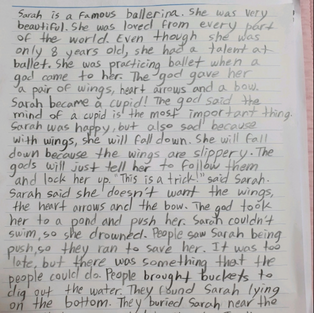 Sarah is a famous ballerina. She was very
beautiful. She was loved from every part
of the world. Even though she was
only 8 years old, she had a talent at
ballet. She was practicing ballet when a
god came to her. The god gave her
a pair of wings, heart arrows and a bow.
Sarah became a cupid! The god said the
mind of a cupid is the most important thing.
Sarah was happy, but also sad because
with wings, she will fall down. She will fall
down because the wings are slippery. The
gods will just tell her to follow them
and lock her up. "This is a trick!" said Sarah.
Sarah said she doesn't want the wings,
the heart arrows and the bow. The god took
her to a pond and push her. Sarah couldn't
swim, so she drowned. People saw Sarah being
push, so they ran to save her. It was too
late, but there was something that the
people could do. People brought buckets to
dig out the water. They found Sarah lying
on the bottom. They buried Sarah near the